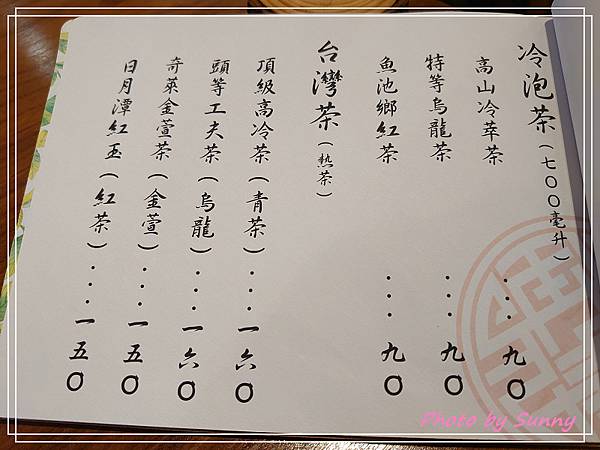 冷泡茶(七〇〇毫升)
高山冷萃茶...九〇
特等烏龍茶...九〇
魚池鄉紅茶...九〇
台灣茶(熱茶)
頂級高冷茶(青茶)...一六〇
頭等工夫茶(烏龍)...一六〇
奇萊金萱茶(金萱)...一五〇
日月潭紅玉(紅茶)...一五〇
Photo by Sunny